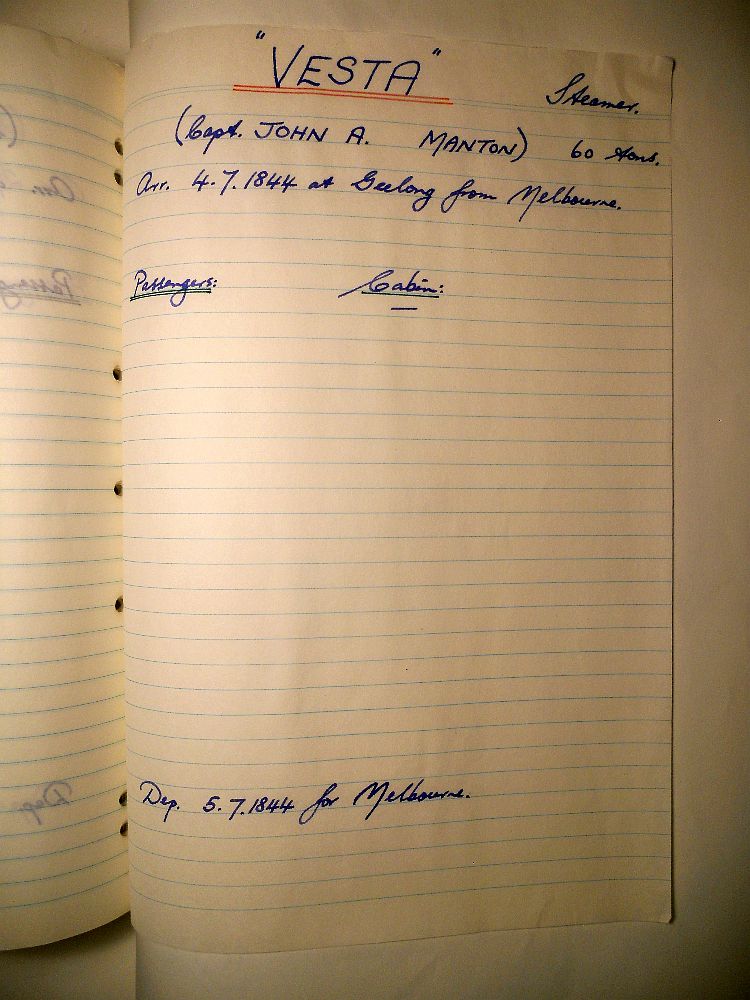 "VESTA"
Steamer.
(Capt. JOHN A. MANTON) 60 tons.
Arr. 4.7.1844 at Geelong from Melbourne.
Passengers: Cabin:
—
Dep. 5.7.1844 for Melbourne.